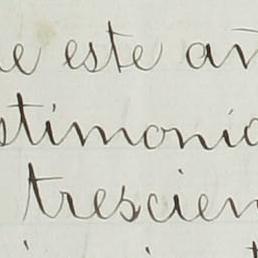 e este an
stimonio
trescien